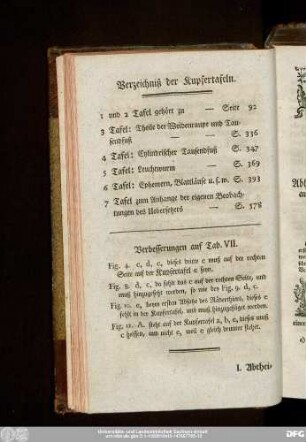 Verzeichniß der Kupfertafeln.
1 und 2 Tafel gehört zu — Seite 92
3 Tafel: Theile der Weidenraupe und Tau-
sendfuß — — S. 336
4 Tafel: Cylindrischer Tausendfuß S. 347
5 Tafel: Leuchtwurm — S. 369
6 Tafel: Ephemern, Blattläuse u. s. w. S. 393
7 Tafel zum Anhange der eigenen Beobach-
tungen des Uebersetzers — S. 378
Verbesserungen auf Tab. VII.
Fig. 4. c, d, e, dieses e muß auf der rechten
Seite auf der Kupfertafel seyn.
Fig. 9. d, e, da fehlt das e auf der rechten Seite, und
muß hinzugesetzt werden, so wie bey Fig. 9. d, e.
Fig. 10. e, beym ersten Absatz des Räderthiers, dieses e
fehlt in der Kupfertafel, und muß hinzugesetzt werden.
Fig. 11. d. steht auf der Kupfertafel a, b, e, dieses muß
c heissen, und nicht e, weil e gleich drunter stehet.
I. Abthei-